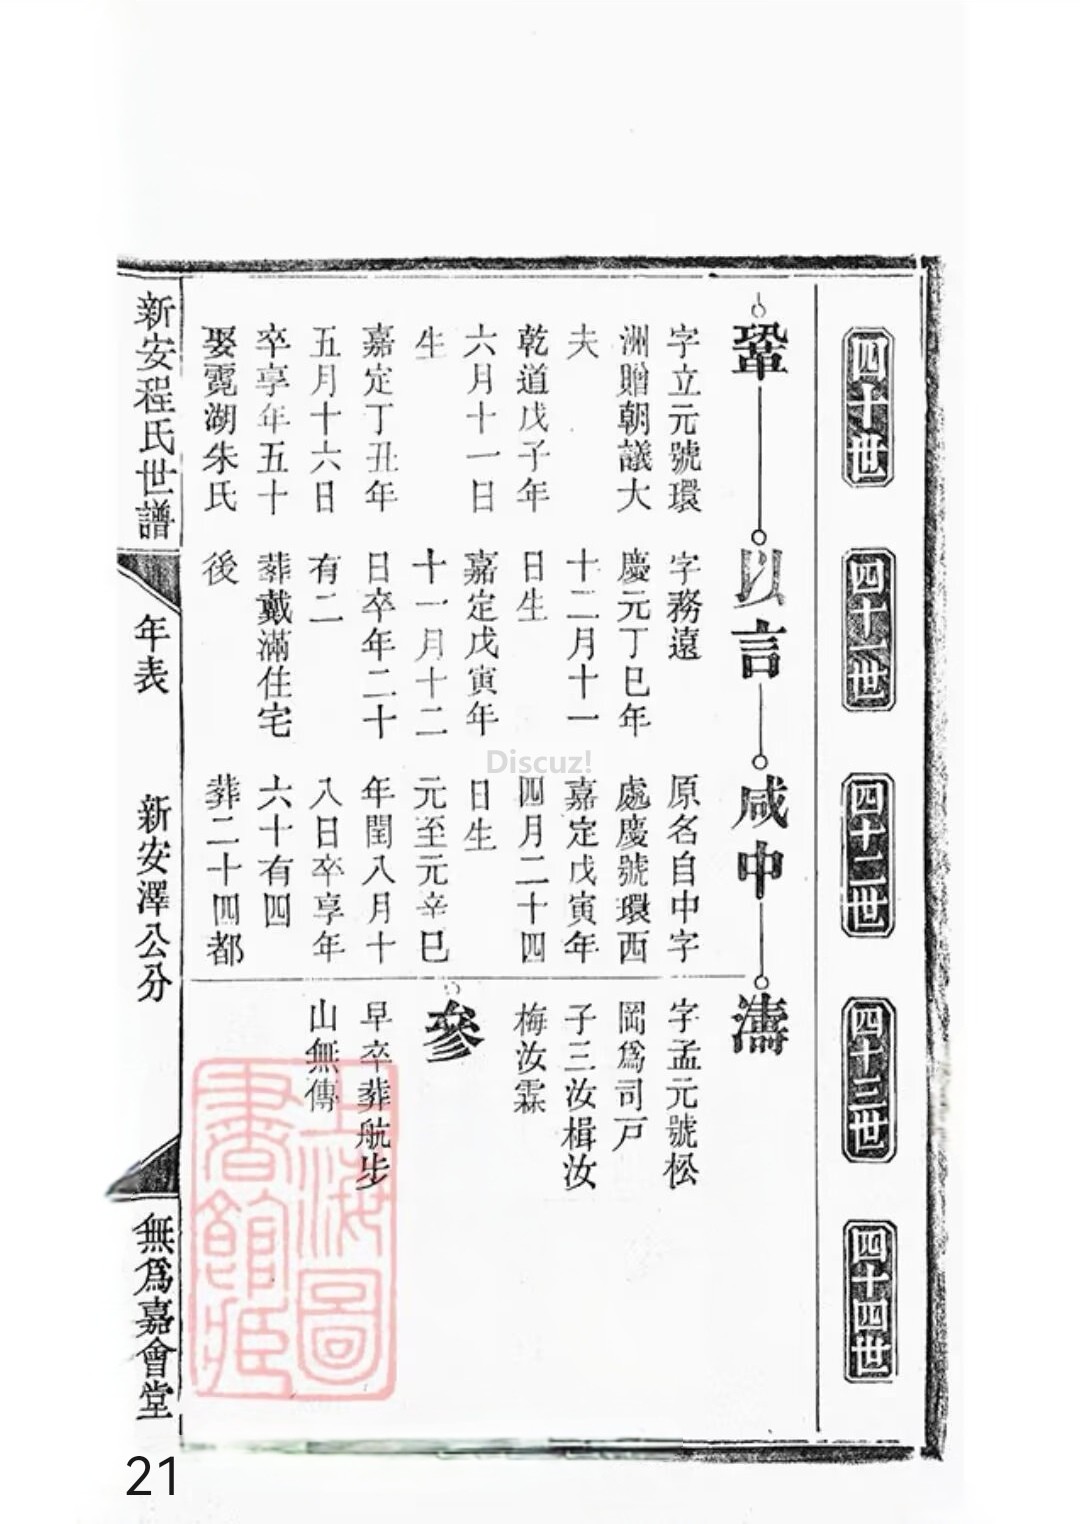 四十世
四十一世
四十二世
四十三世
四十四世
鞏
字立元號環
洲贈朝議大
夫
乾道戊子年
六月十一日
生
嘉定丁丑年
五月十六日
卒享年五十
娶霓湖朱氏
以言
字務遠
慶元丁巳年
十二月十一
日生
嘉定戊寅年
十一月十二
日卒年二十
有二
葬戴滿住宅
後
咸中
原名自中字
處慶號環西
嘉定戊寅年
四月二十四
日生
元至元辛巳
年閏八月十
八日卒享年
六十有四
葬二十四都
濤
字孟元號松
岡爲司戸
子三汝楫汝
梅汝霖
參
早卒葬航步
山無傳
新安程氏世譜
年表
新安澤公分
無爲嘉會堂
上海圖
書館藏
Discuz!
21